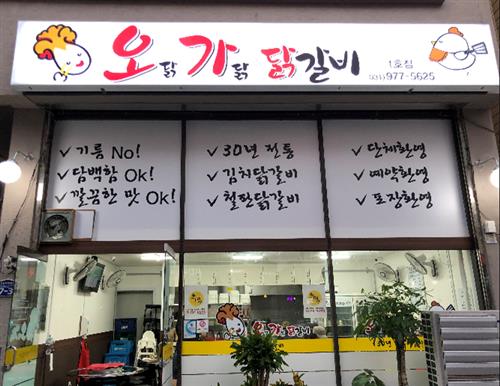 오닭 가닭 닭갈비 1호점
031) 977-5625
✓ 기름 No!
✓ 담백함 Ok!
✓ 깔끔한 맛 Ok!
✓ 30년 전통
✓ 김치닭갈비
✓ 철판닭갈비
✓ 단체환영
✓ 예약환영
✓ 포장환영
오닭 가닭 닭갈비